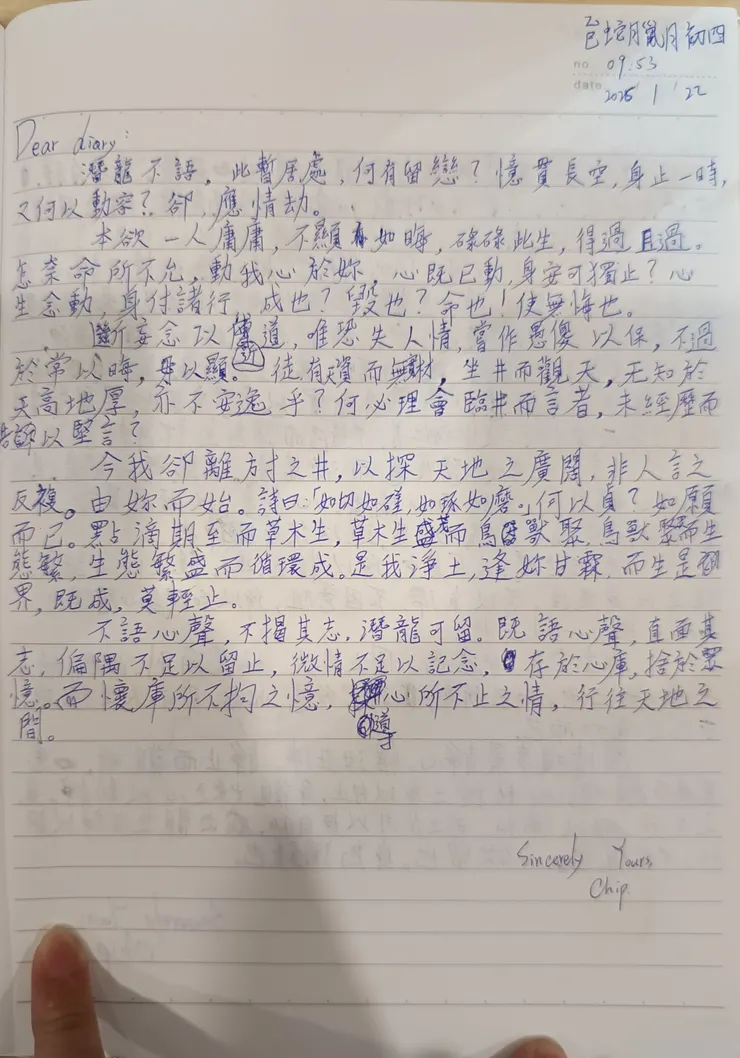 乙巳蛇月臘月初四
no. 09:53
date 2026 / 1 / 22
Dear diary:
潛龍不語，此暫居處，何有留戀？憶貫長空，身止一時，
又何以動容？卻，應情劫。
本欲一人庸庸，不顯如晦，碌碌此生，得過且過。
怎奈命所不允，動我心於妳，心既已動，身安可獨止？心
生念動，身付諸行，成也？毀也？命也！使無悔也。
斷妄念以傳道，唯恐失人情，當作愚傻以保，不過
於常以晦，毋以顯。徒有天資而無財，坐井而觀天，无知於
天高地厚，亦不安逸乎？何必理會臨井而言者，未經歷而
告訴以堅言？
今我卻離方寸之井，以探天地之廣闊，非人言之
反複。由妳而始。詩曰：「如切如磋，如琢如磨。」何以貞？如願
而已。點滴期至而草木生，草木生盛而鳥獸聚，鳥獸聚而生
態繁，生態繁盛而循環成。是我淨土，逢妳甘霖，而生是
界，既成，莫輕止。
不語心聲，不揭其志，潛龍可留。既語心聲，直面其
志，偏隅不足以留止，微情不足以記念，存於心庫，捨於
憶。而懷庫所不拘之憶，導心所不止之情，行往天地之
間。
Sincerely Yours,
Chip.